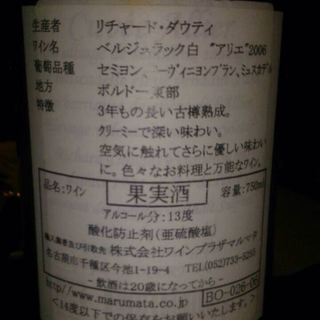 生産者 リチャード・ダウティ
ワイン名 ベルジュラック白 "アリエ"2006
葡萄品種 セミヨン、ソーヴィニヨンブラン、ミュスカデル
地方 ボルドー東部
特徴 3年もの長い古樽熟成。
クリーミーで深い味わい。
空気に触れてさらに優しい味わい
に。色々なお料理と万能なワイン。
品名:ワイン 果実酒 容量:750ml
アルコール分:13度
酸化防止剤(亜硫酸塩)
輸入業者及び引取先 株式会社ワインプラザマルマタ
名古屋市千種区今池1-19-4 TEL(052)733-
－飲酒は20歳になってから－
http://www.marumata.co.jp BO-026-06
<14度以下での保存をお願いいたします。>